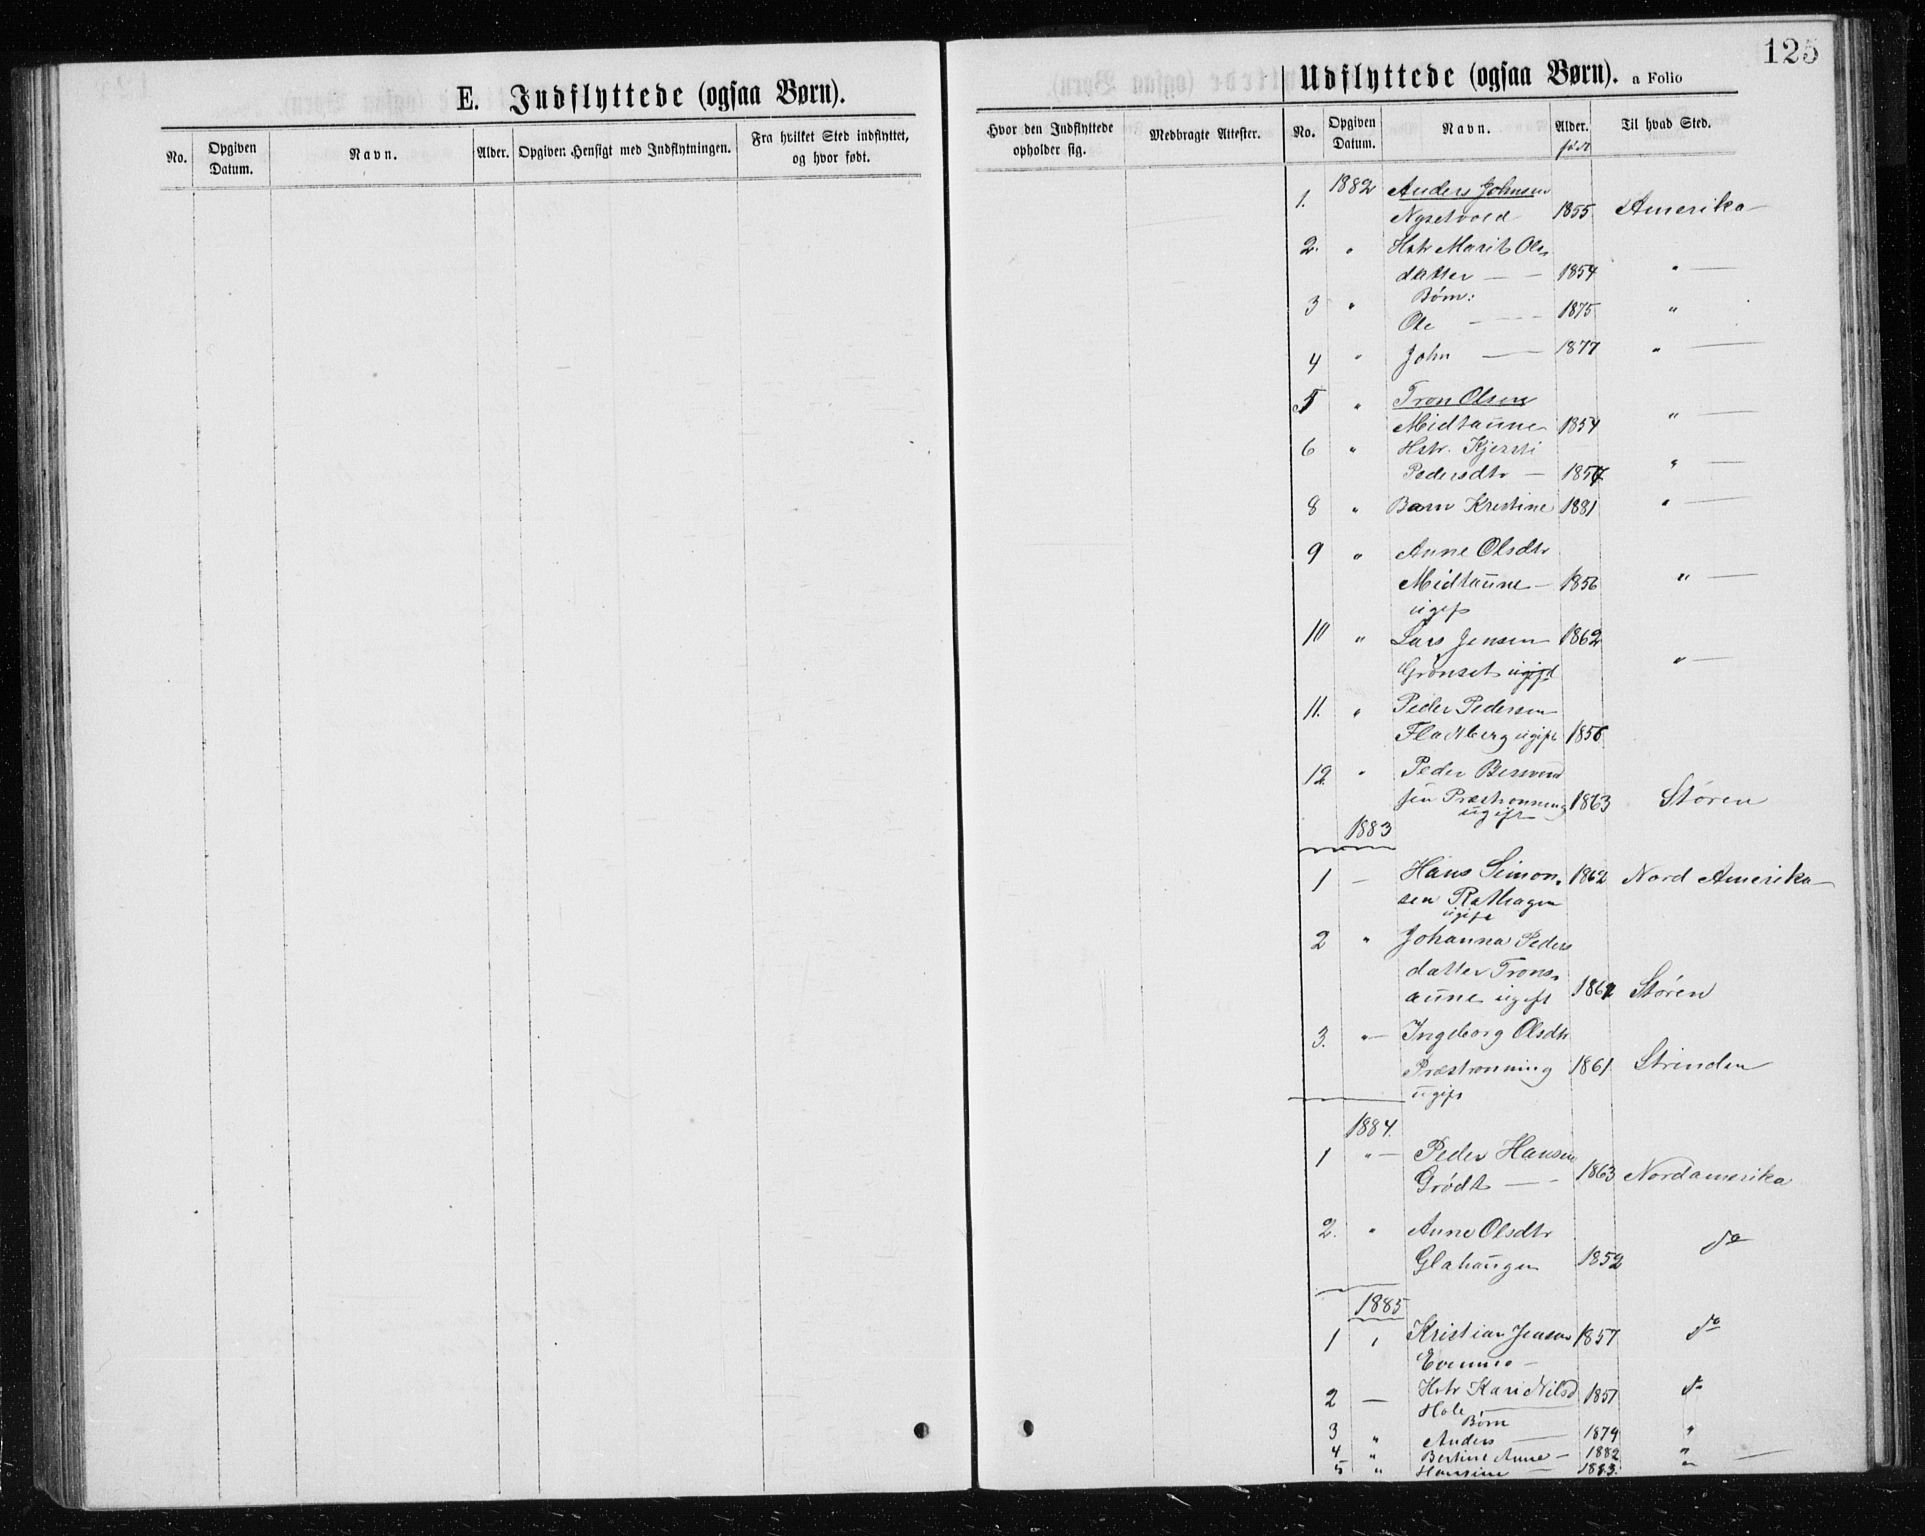 125
E. Indflyttede (ogsaa Børn).
No.
Opgiven Datum.
Navn.
Alder.
Opgiven Hensigt med Indflytningen.
Fra hvilket Sted indflyttet, og hvor født.
Udflyttede (ogsaa Børn). a Folio
Hvor den Indflyttede opholder sig.
Medbragte Attester.
No.
Opgiven Datum.
Navn.
Alder.
født
Til hvad Sted.
1. 1882 Anders Johnsen
Nysetvold 1855 Amerika
2. " Hstr Marit Ols
datter — — 1854 " —
3 " Børn:
Ole — — 1875 "
4 " John — 1877 " —
5 " Tron Olsen
Midtaune 1854 " —
6 " Hstr. Kjersti
Pedersdtr — 1857 " —
8 " Barn Kristine 1881 " —
9 " Anne Olsdtr
Midtaune — 1856 " —
ugift
10 " Lars Jensen 1862
Grønset ugift " —
11. " Peder Pedersen
Fladtberg ugift 1856
12 " Peder
sen Præstrønning 1863 Støren
ugift
1883
1 — Hans Simon- 1862 Nord Amerika
sen Rathagen
ugift
2 " Johanna Peders
datter Trons-
aune ugift 1862 Støren
3. " — Ingeborg Olsdtr
Præstrønning 1861 Strinden
ugift
1884.
1 " — Peder Hansen
Grødt — - 1863 Nordamerika
2. " Anne Olsdtr
Glahaugen 1852 do
1885
1 " Kristian Jensen 1857 do
Evenmo —
2 — Hstr Kari Nilsd 1851 do
Hole
Børn
3 " Anders — 1879 "
4 " Bertine Anne — 1882 " —
5 " Hansine — 1883. "